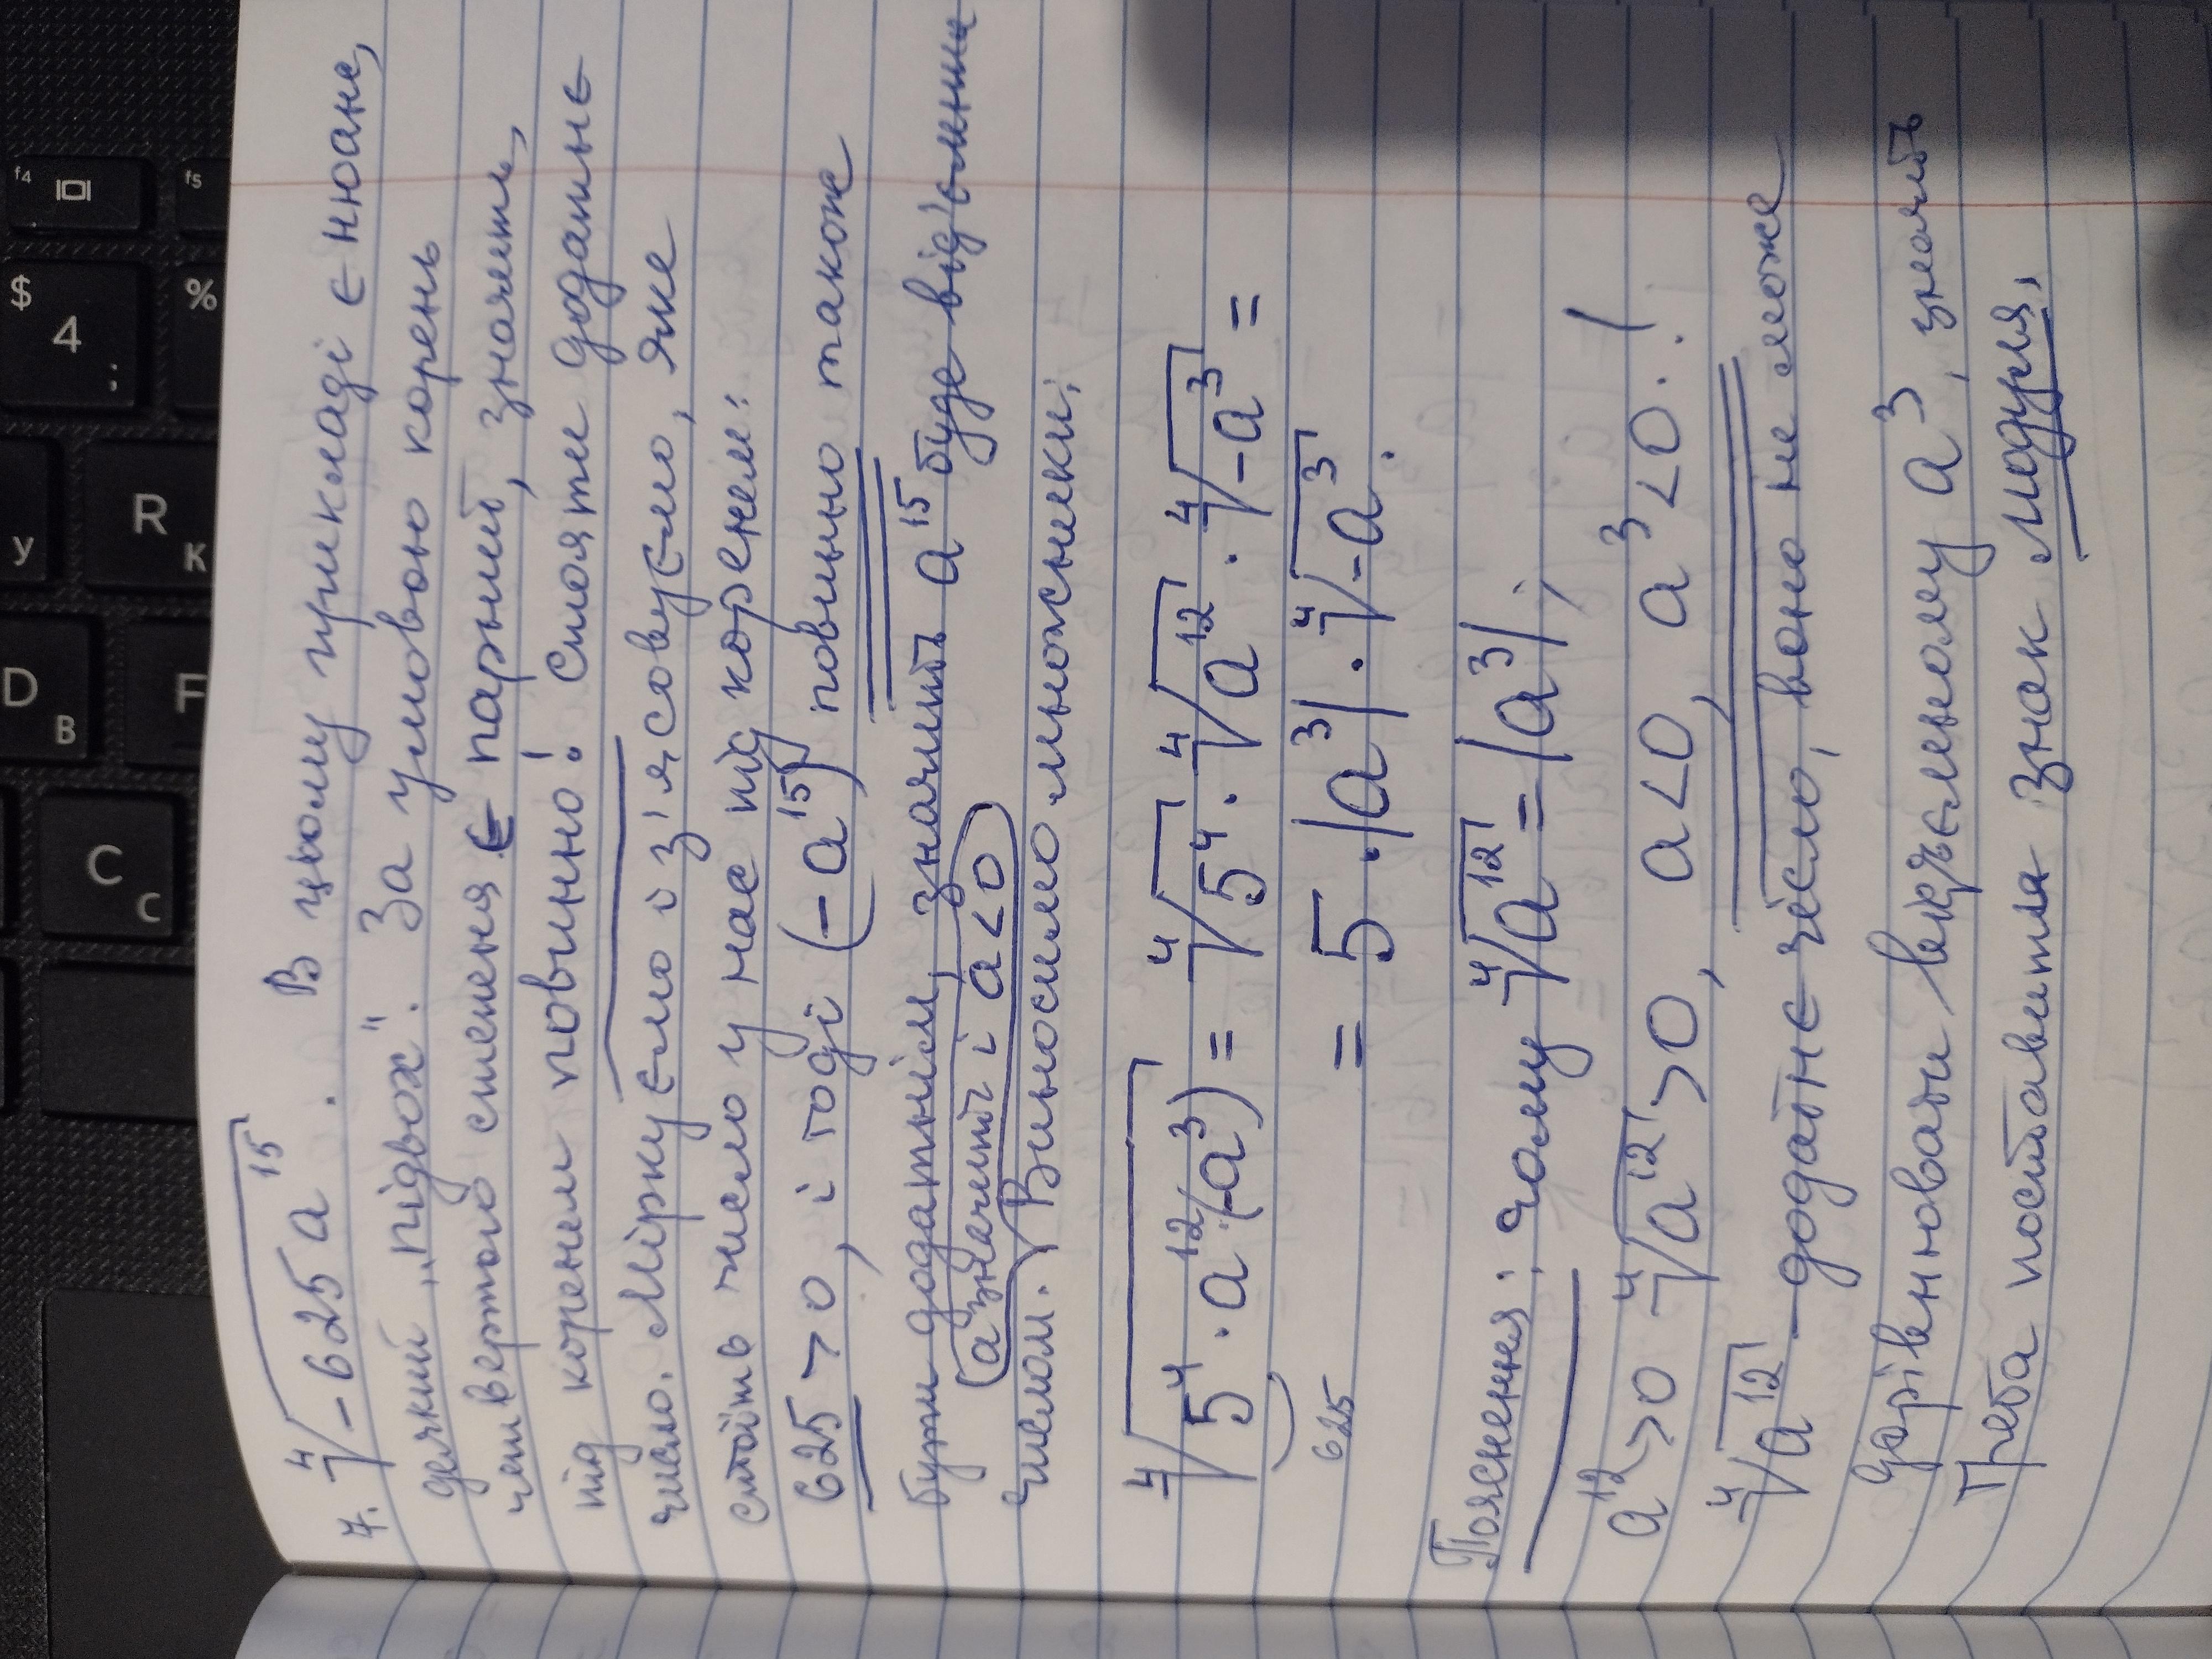 7. ⁴√-625a¹⁵. В цьому прикладі є нюанс,
деякий „підвох". За умовою корень
четвертого степеня є парний, значить,
під коренем повинно! стояти додатне
число. Міркуємо і з'ясовуємо, яке
стоїть число у нас під коренем:
625 > 0, і тоді (-a¹⁵) повинно також
бути додатнім, значить a¹⁵ буде від'ємним
(а значить і a<0)
числом. Виносимо множники:
⁴√5⁴·a¹²·(-a³) = ⁴√5⁴ · ⁴√a¹² · ⁴√-a³ =
625
= 5·|a³|·⁴√-a³.
Пояснення: чому ⁴√a¹² = |a³|;
a¹²>0 ⁴√a¹²>0, a<0, a³<0.!
⁴√a¹² – додатнє число, воно не може
дорівнювати від'ємному a³, значить
треба поставити знак модуля.
$
4
f4
f5
%
У
R
К
D
В
П
C
С